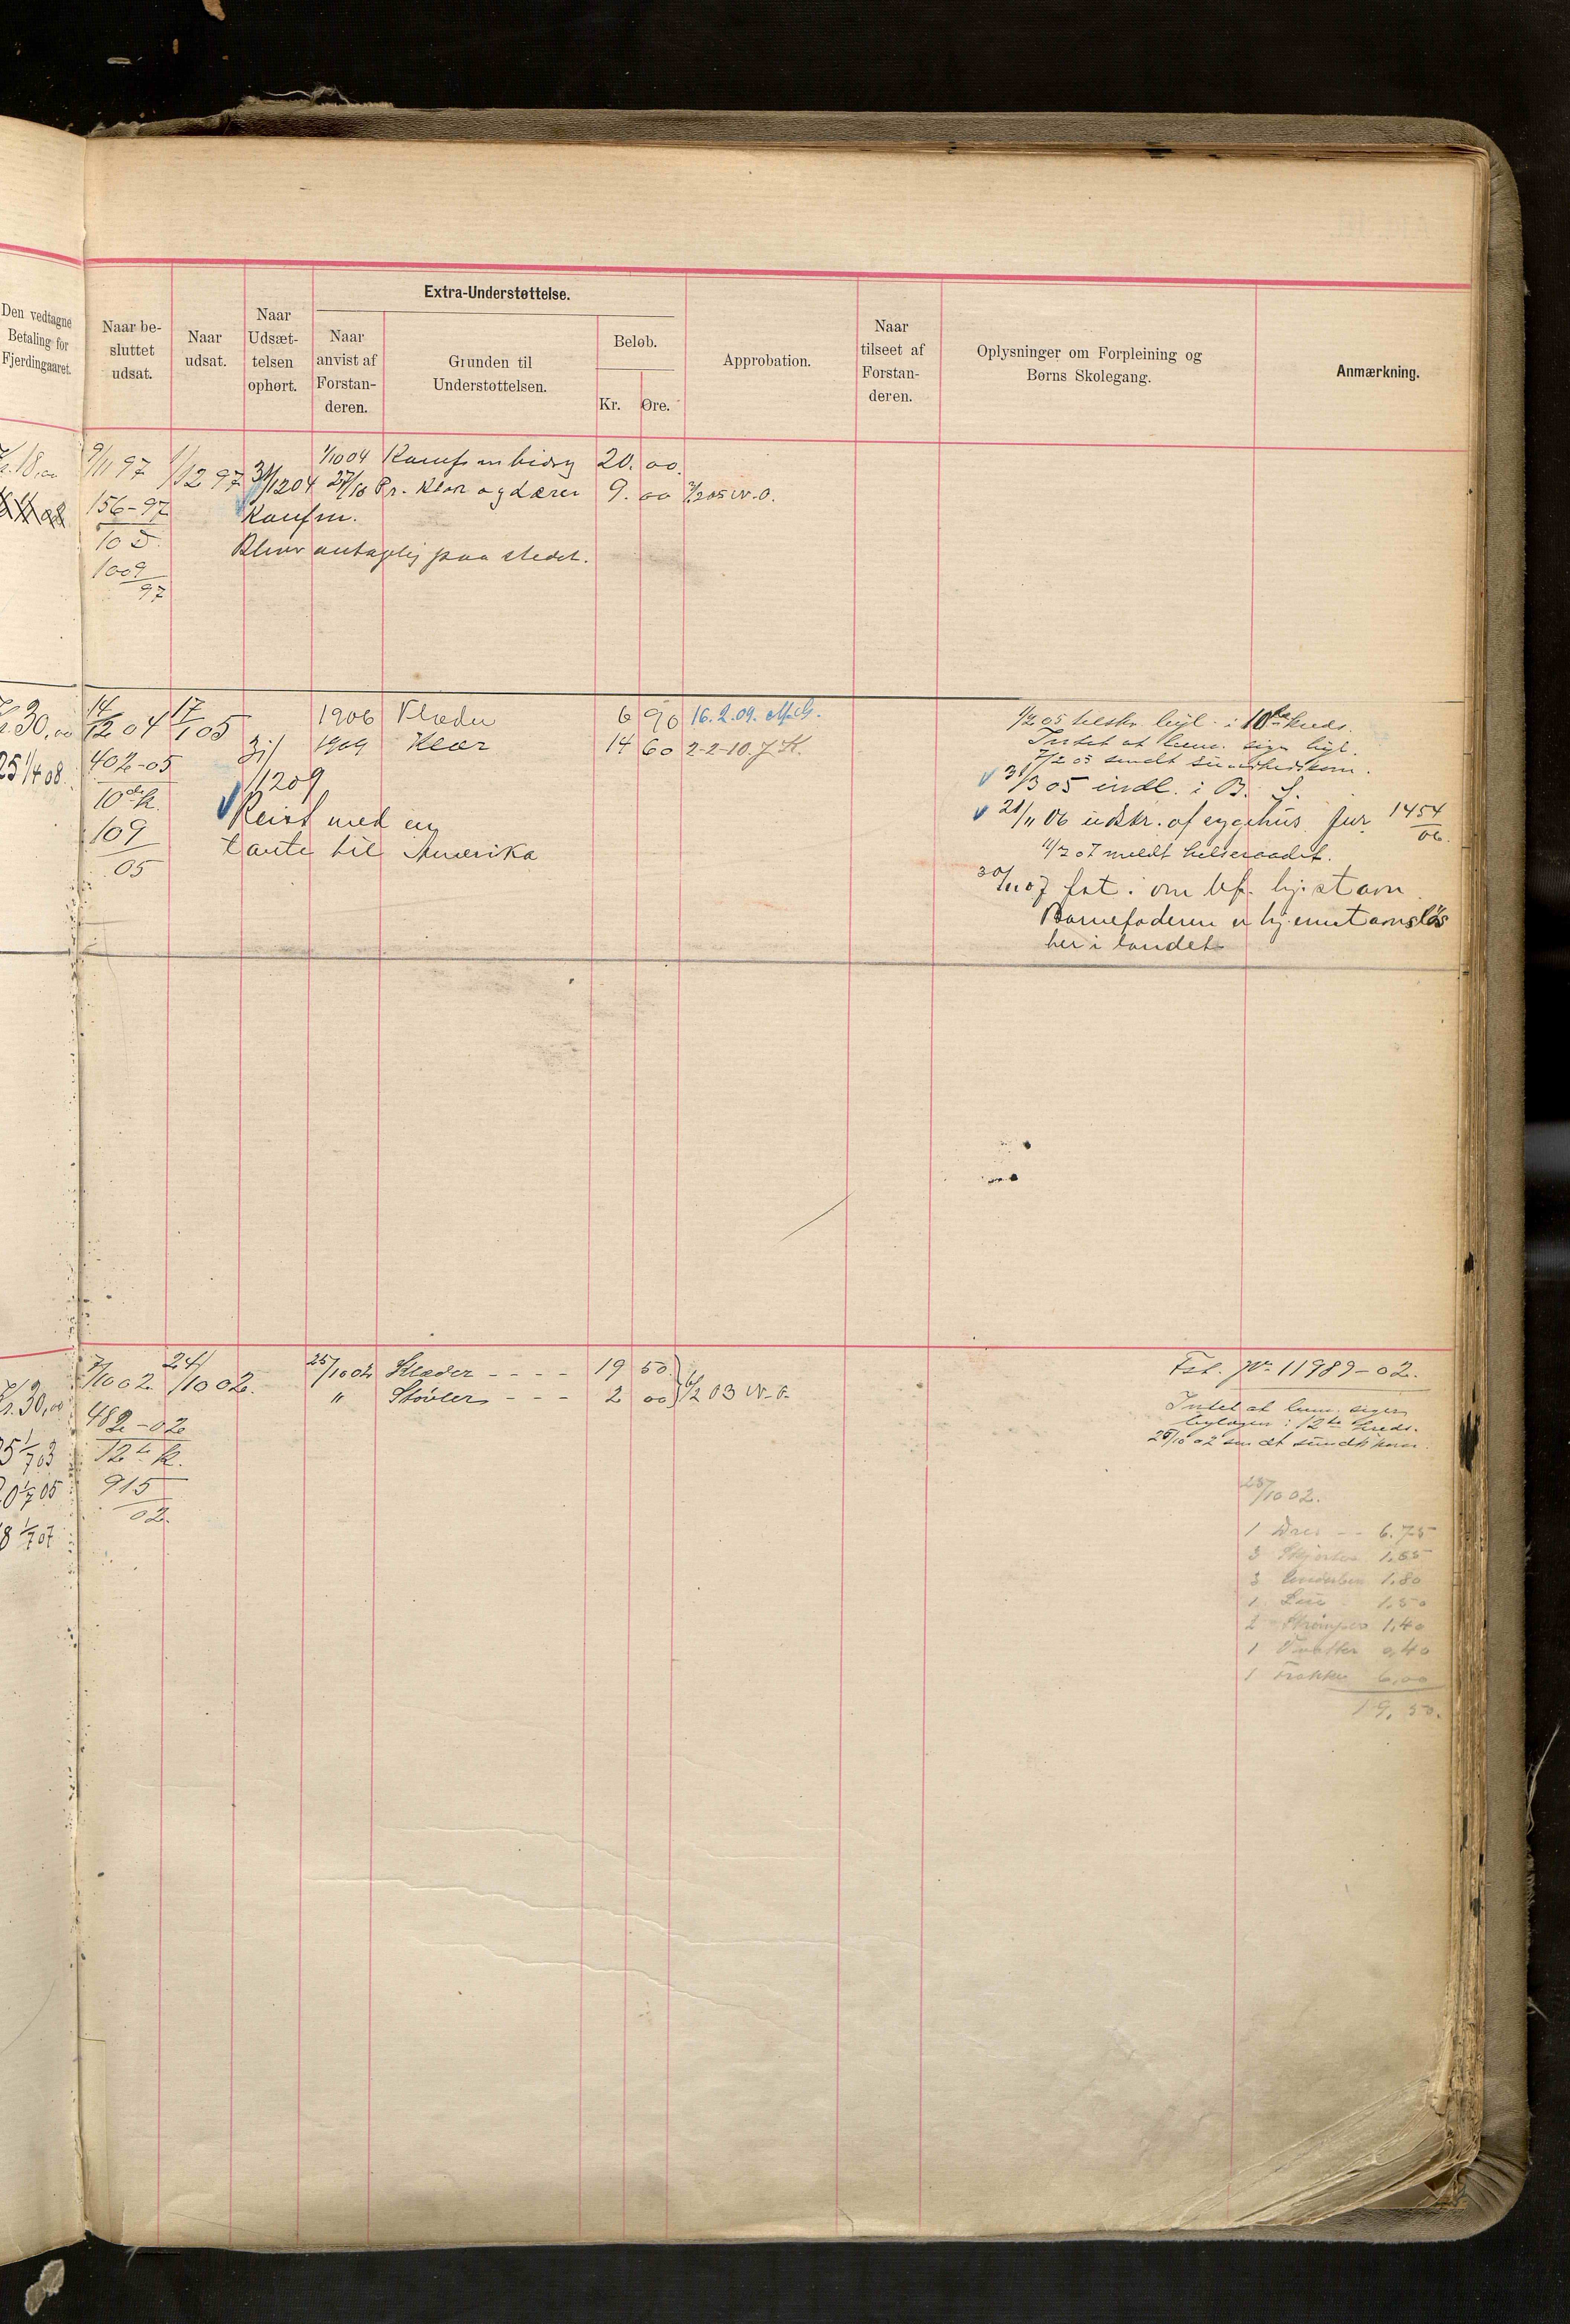 Den vedtagne
Betaling for
Fjerdingaaret.
Naar be-
sluttet
udsat.
Naar
udsat.
Naar
Udsæt-
telsen
ophørt.
Extra-Understøttelse.
Naar
anvist af
Forstan-
deren.
Grunden til
Understøttelsen.
Beløb.
Kr. Øre.
Approbation.
Naar
tilseet af
Forstan-
deren.
Oplysninger om Forpleining og
Børns Skolegang.
Anmærkning.
18,00 9/11 97 1/12 97 31/12 04 1/10 04 Konf.m.bidrg 20. 00.
27/10 Pr. Klær og Lærer 9. 00 2/2 05 W.O.
156-97
Konfm.
10 D.
Bliver antagelig paa stedet.
1009
97
30,00 14/12 04 17/1 05 1906 Klæder 6 90 16.2.09.
31/12 09 1909 Klær 14 60 2-2-10. J.K.
25 1/4 08
402-05
10de k.
109
05
Reist med en
tante til Amerika
1/2 05 helskr. bgl. i 10de kreds.
Intet at bem. siger bgl.
7/2 05 sendt sundhedskom.
31/3 05 indl. i B. S.
21/11 06 udskr. af sygehus Jur. 1454
06.
11/2 07 meldt helseraadet.
30/11 07 fat. om bf. hjstavn
Barnefaderen er hjemstavnsløs
her i landet
30,00 7/10 02. 24/10 02. 25/10 02 Klæder - - - - 19 50
" Støvler - - - 2 00 6/2 03 W.O.
25 1/7 03
20 1/7 05
18 1/7 07
482-02
12te k.
915
02.
Fst. No 11989-02.
Intet at bem. siger
byl­ægen i 12te kreds.
25/10 02 sendt sundh.kom.
25/10 02.
1 Dres - - 6.75
3 Skjorter 1,65
3 Underben 1,80
1 Lue 1,50
2 Strømper 1,40
1 Vanter 0,40
1 Frakke 6,00
19,50.